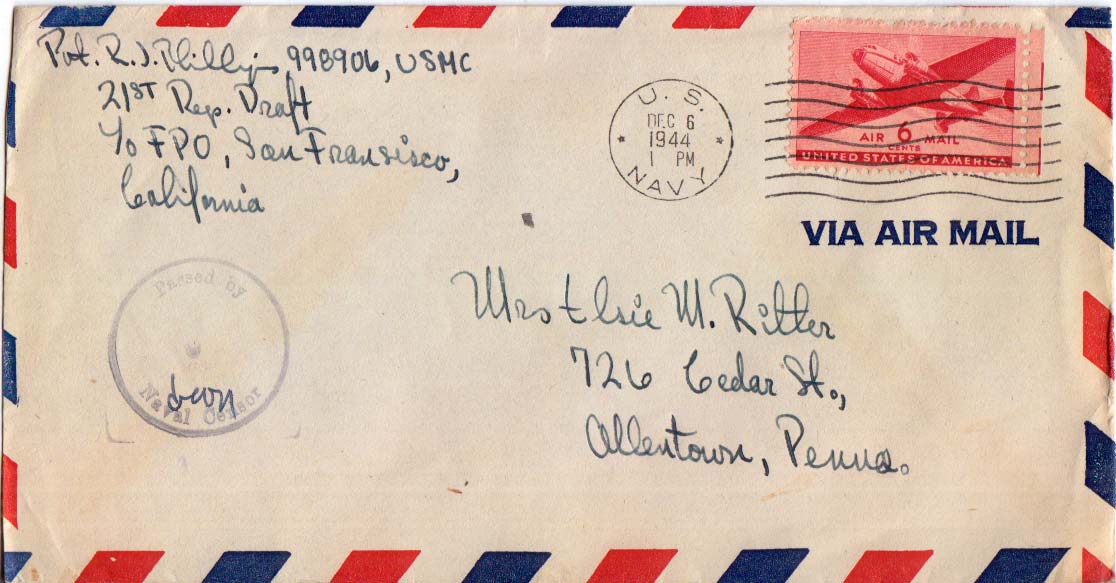 Pvt. R. J. Phillips 998906, USMC
21ST Rep. Draft
c/o FPO, San Fransisco,
California
U. S.
DEC 6
1944
1 PM
NAVY
AIR 6 MAIL
CENTS
UNITED STATES OF AMERICA
VIA AIR MAIL
Passed by
Naval Censor
Mrs Elsie M. Ritter
726 Cedar St.,
Allentown, Penna.